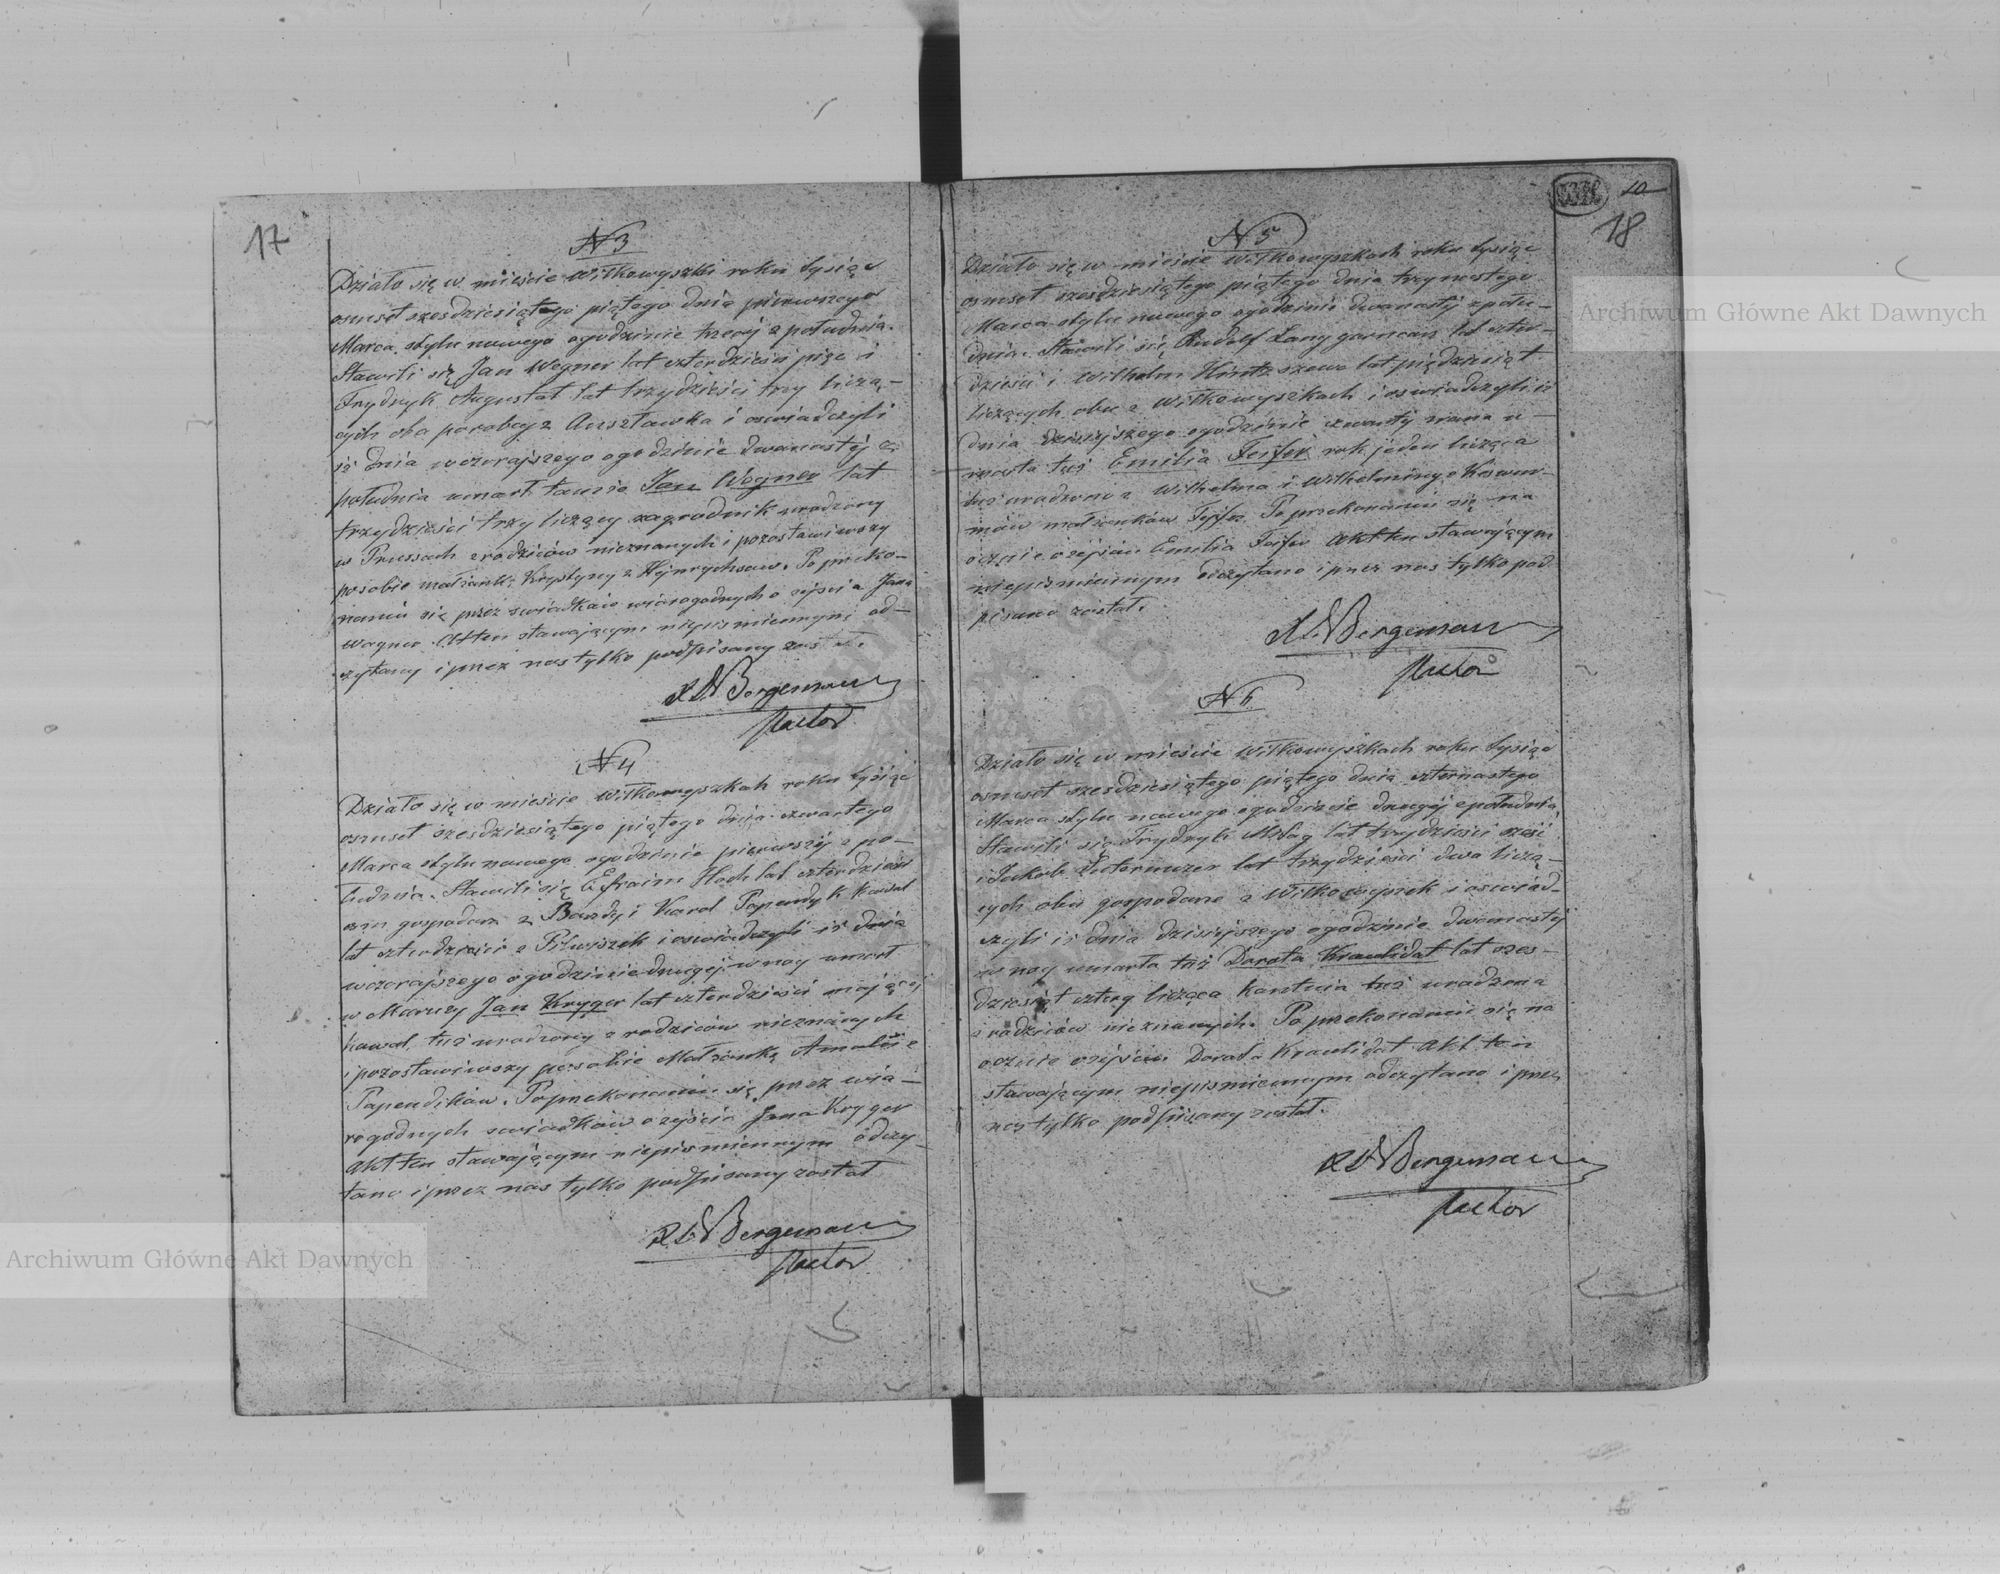 17
N 3
Działo się w mieście Wiłkowyszki roku tysiąc
osmset szesdziesiątego piątego dnia pierwszego
Marca stylu nowego ogodzinie trzeci z południa.
Stawili się Jan Wegner lat czterdzieści pięć i
Frydryk Augustat lat trzydzieści trzy liczą-
cych oba parobcy z i oswiadczyli
iż dnia wczorajszego ogodzinie dwanastéj z
południa umarł tamże Jan Wegner lat
trzydzieści trzy liczący zagrodnik urodzony
w Prussach z rodziców nieznanych i pozostawiwszy
posobie małżonkę Krystynę z Hejnrychsów. Po przeko-
naniu się przez swiadków wiarogodnych o zejściu Jana
Wagner Akt ten stawającym niepismiennym od-
czytany i przez nas tylko podpisany został.
Bergemann
Pastor
N 4
Działo się w mieście Wiłkowyszkah roku tysiąc
osmset szesdziesiątego piątego dnia czwartego
Marca stylu nowego ogodzinie pierwszéj z po-
łudnia. Stawili się Efraim Hoch lat czterdzieści
osm gospodarz z i Karol Papendyk kowal
lat czterdzieści z Pilwiszek i oswiadczyli iż dnia
wczorajszego ogodzinie drugéj w nocy umarł
w Jan Kryger lat czterdzieści mający
kowal tuż urodzony z rodziców nieznanych
i pozostawiwszy posobie Małżonkę Amalię z
Papendików. Poprzekonaniu się przez wia-
rogodnych swiadków o zejściu Jana Kryger
Akt ten stawającym niepismiennym odczy-
tano i przez nas tylko podpisany został
Bergemann
Pastor
10
18
N 5
Działo się w mieście Wiłkowyszkach roku tysiąc
osmset szesdziesiątego piątego dnia trzynastego
Marca stylu nowego ogodzinie dwanastéj z połu-
dnia. Stawili się Rudolf Lang garncarz lat czter-
dzieści i Wilhelm Hintz szewc lat piędziesiąt
liczących obu z Wiłkowyszkach i oswiadczyli iż
dnia dzisiejszego ogodzinie czwartéj zrana u-
marła tuż Emilia Feifer rok jeden licząca
tuż urodzona z Wilhelma i Wilhelminy z
małżonków Fejfer. Po przekonaniu się na
ocznie o zejściu Emilia Feifer Akt ten stawającym
niepismiennym odczytano i przez nas tylko pod
pisano został.
Bergemann
Pastor
N 6
Działo się w mieście Wiłkowyszkach roku tysiąc
osmset szesdziesiątego piątego dnia czternastego
Marca stylu nowego ogodzinie drugéj z południa
Stawili się Frydryk lat trzydzieści sześć
i Jakub lat trzydzieści dwa liczą-
cych obu gospodarze z Wiłkowyszek i oswiad-
czyli iż dnia dzisiejszego ogodzinie dwanastéj
w nocy umarła tuż Dorota Kraulidat lat szes-
dziesiąt cztery licząca tuż urodzona
z rodziców nieznanych. Po przekonaniu się na
ocznie o zejściu Dorota Kraulidat Akt ten
stawającym niepismiennym odczytano i przez
nas tylko podpisany został.
Bergemann
Pastor
Archiwum Główne Akt Dawnych
Archiwum Główne Akt Dawnych